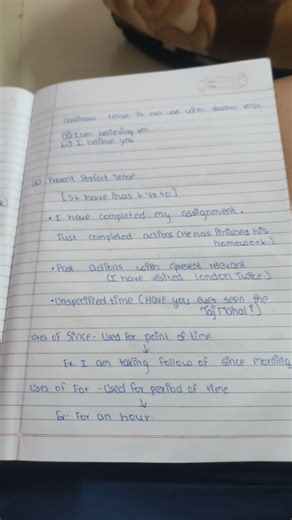 continuous tense is not use with stative verbs
(x) I am believing you.
(✓) I believe you.
(c) Present Perfect Tense
[S + have/has + V3 + o]
• I have completed my assignment.
Just completed actions (He has finished his
homework)
• Past actions with present relevant
(I have visited London Twice)
• Unspecified time (Have you ever seen the
Taj Mahal?)
Uses of Since - Used for point of time
↓
Ex. I am taking follow of since morning
Uses of For - Used for period of time
↓
Ex. For an hour.